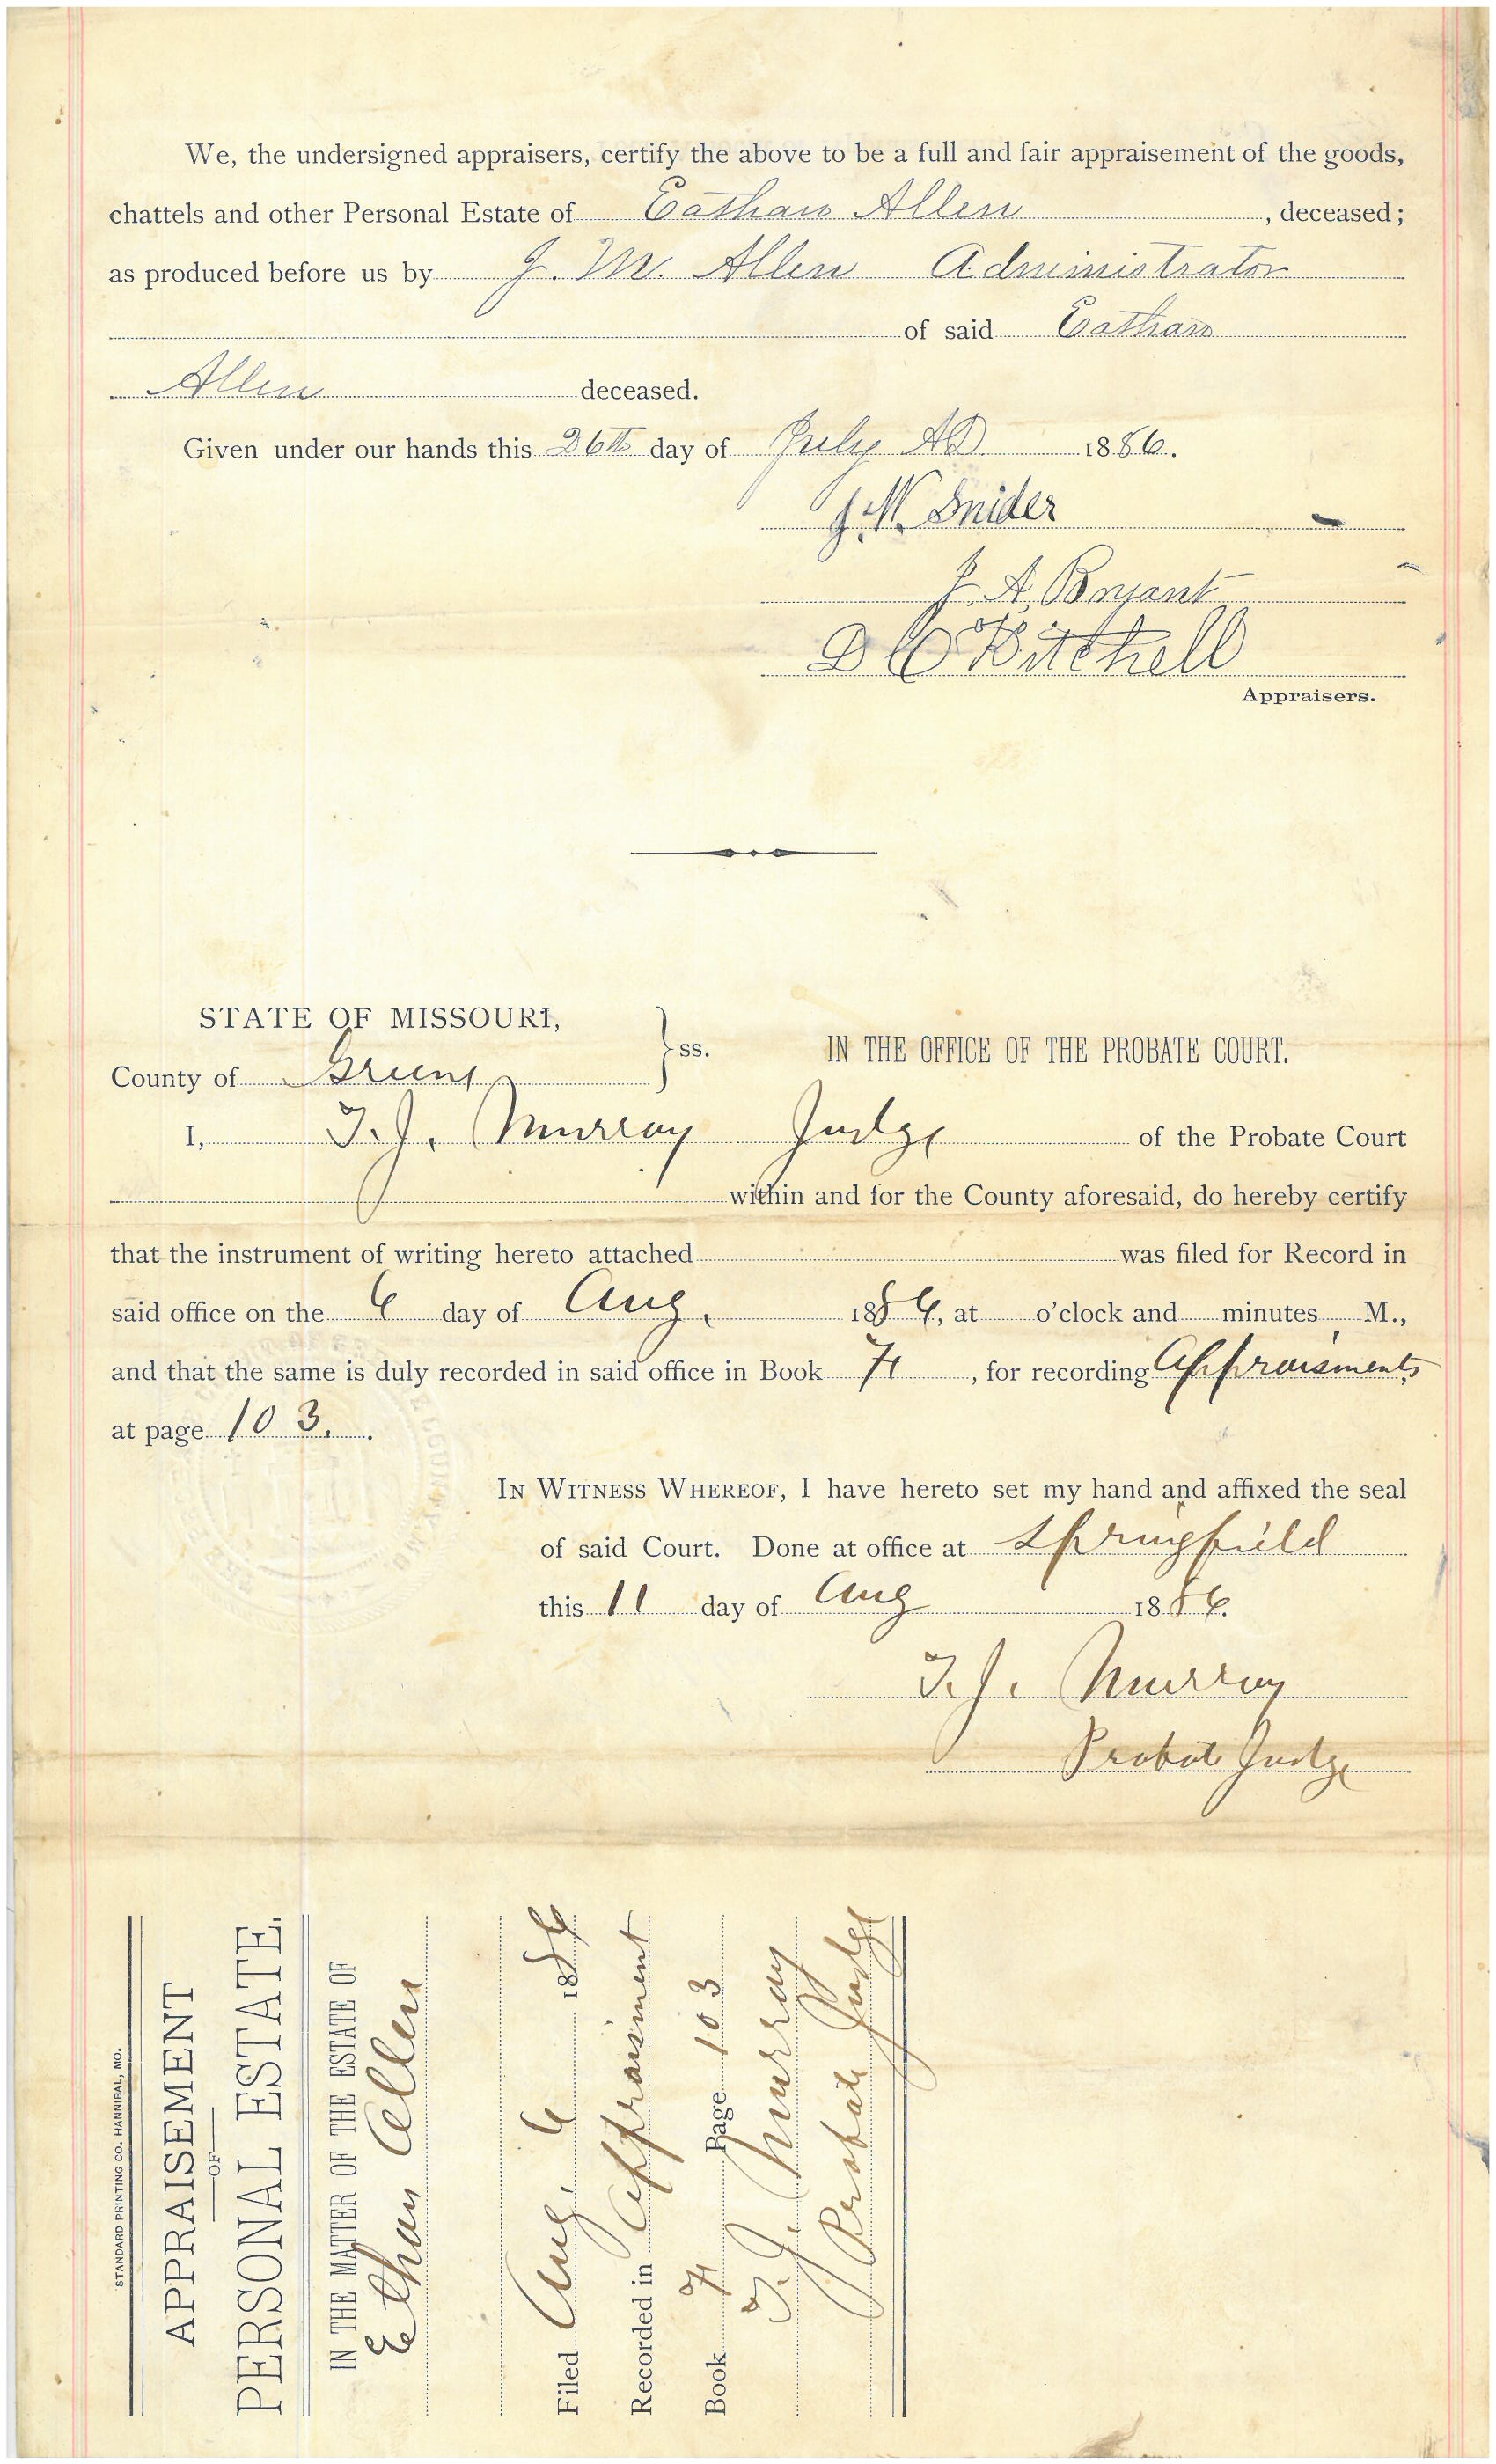 We, the undersigned appraisers, certify the above to be a full and fair appraisement of the goods,
chattels and other Personal Estate of Eathan Allen, deceased;
as produced before us by J. M. Allen Administrator
of said Eathan
Allen deceased.
Given under our hands this 26th day of July AD 1886.
J. W. Snider
J. A. Bryant
D C Kitchell
Appraisers.
STATE OF MISSOURI,
County of Greene
ss.
IN THE OFFICE OF THE PROBATE COURT.
I, T. J. Murray Judge of the Probate Court
within and for the County aforesaid, do hereby certify
that the instrument of writing hereto attached was filed for Record in
said office on the 6 day of Aug. 1886, at o'clock and minutes M.,
and that the same is duly recorded in said office in Book H, for recording Appraisments
at page 103.
IN WITNESS WHEREOF, I have hereto set my hand and affixed the seal
of said Court. Done at office at Springfield
this 11 day of Aug 1886.
T. J. Murray
Probate Judge
STANDARD PRINTING CO. HANNIBAL, MO.
APPRAISEMENT
OF
PERSONAL ESTATE.
IN THE MATTER OF THE ESTATE OF
Ethan Allen
Filed Aug. 6 1886
Recorded in Appraisment
Book H Page 103
T. J. Murray
Probate Judge